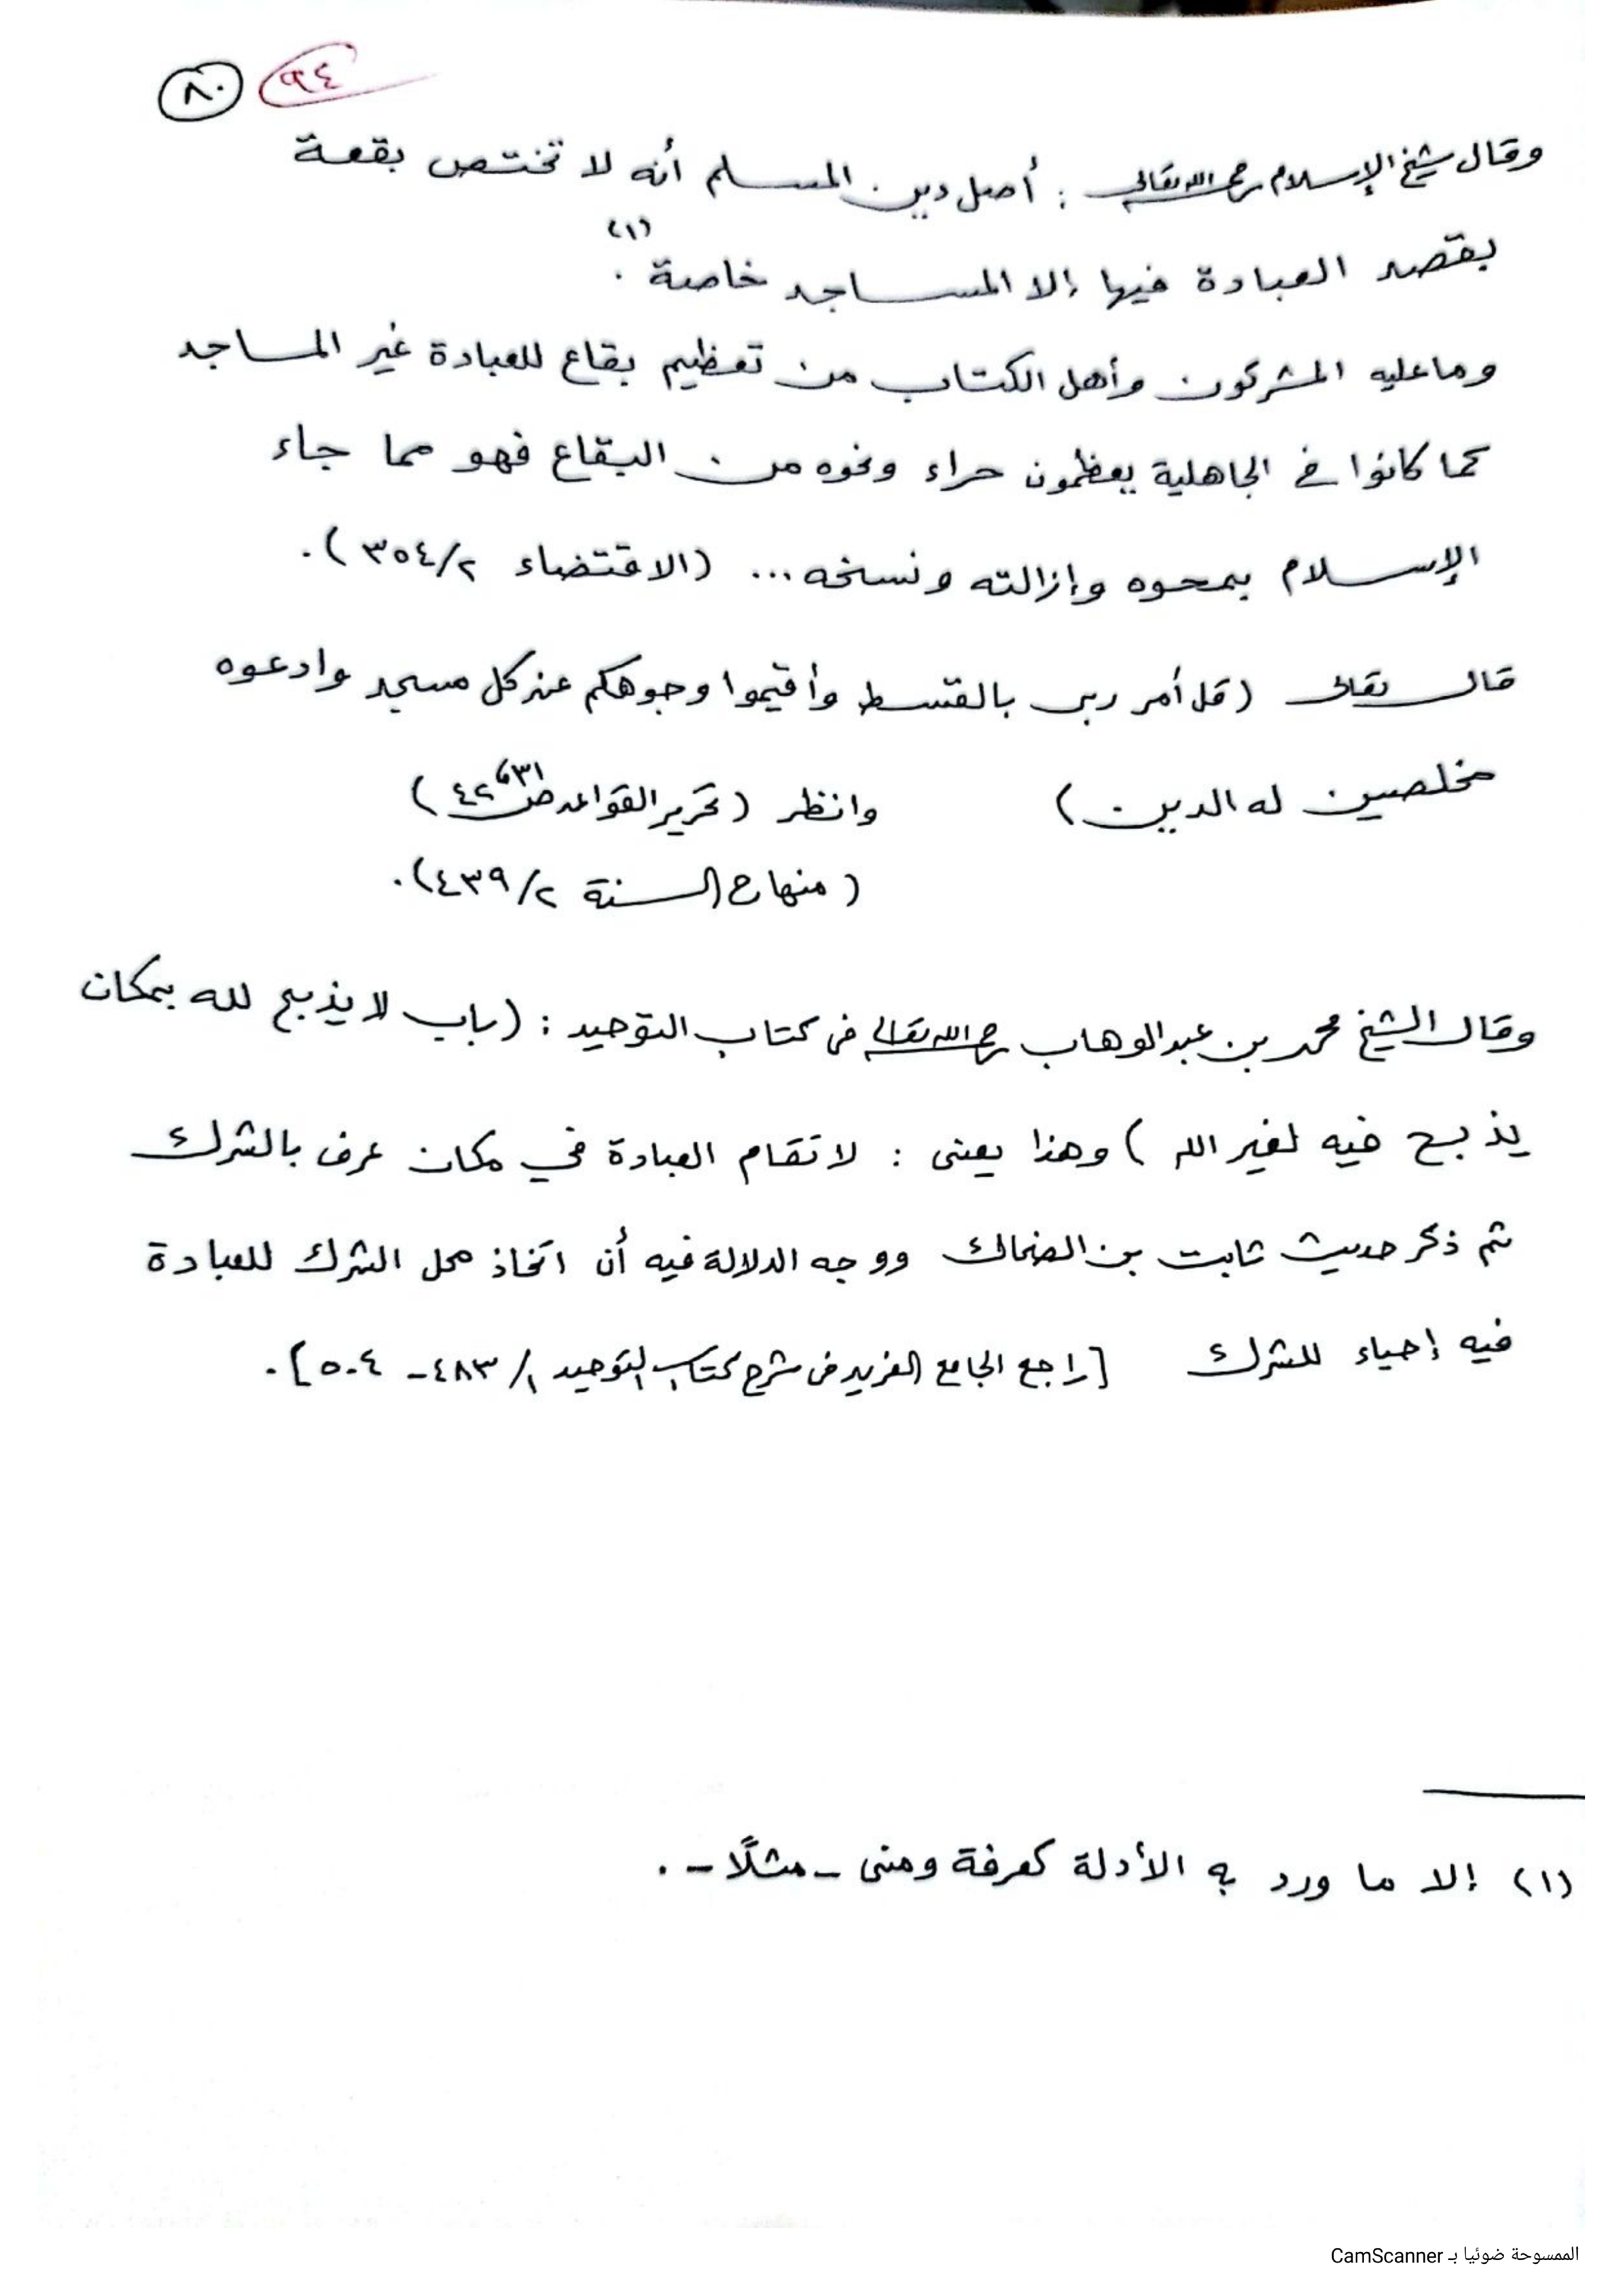 ٩٤ ٨٠
وقال شيخ الإسلام رحمه الله تعالى : أصل دين المسلم أنه لا تختص بقعة
بقصد العبادة فيها إلا المساجد خاصة (١) .
وما عليه المشركون وأهل الكتاب من تعظيم بقاع للعبادة غير المساجد
كما كانوا في الجاهلية يعظمون حراء ونحوه من البقاع فهو مما جاء
الإسلام بمحوه وإزالته ونسخه ... (الاقتضاء ٢/٣٥٤) .
قال تعالى (قل أمر ربى بالقسط وأقيموا وجوهكم عند كل مسجد وادعوه
مخلصين له الدين) وانظر (تحرير القواعد ص ٣١، ٤٢)
(منهاج السنة ٢/٤٣٩) .
وقال الشيخ محمد بن عبد الوهاب رحمه الله تعالى فى كتاب التوحيد : (باب لا يذبح لله بمكان
يذبح فيه لغير الله) وهذا يعنى : لا تقام العبادة في مكان عرف بالشرك
ثم ذكر حديث ثابت بن الضحاك ووجه الدلالة فيه أن اتخاذ محل الشرك للعبادة
فيه إحياء للشرك [راجع الجامع الفريد فى شرح كتاب التوحيد ١/٤٨٣ - ٥٠٤] .
(١) إلا ما ورد به الأدلة كعرفة ومنى - مثلًا - .
الممسوحة ضوئيا بـ CamScanner